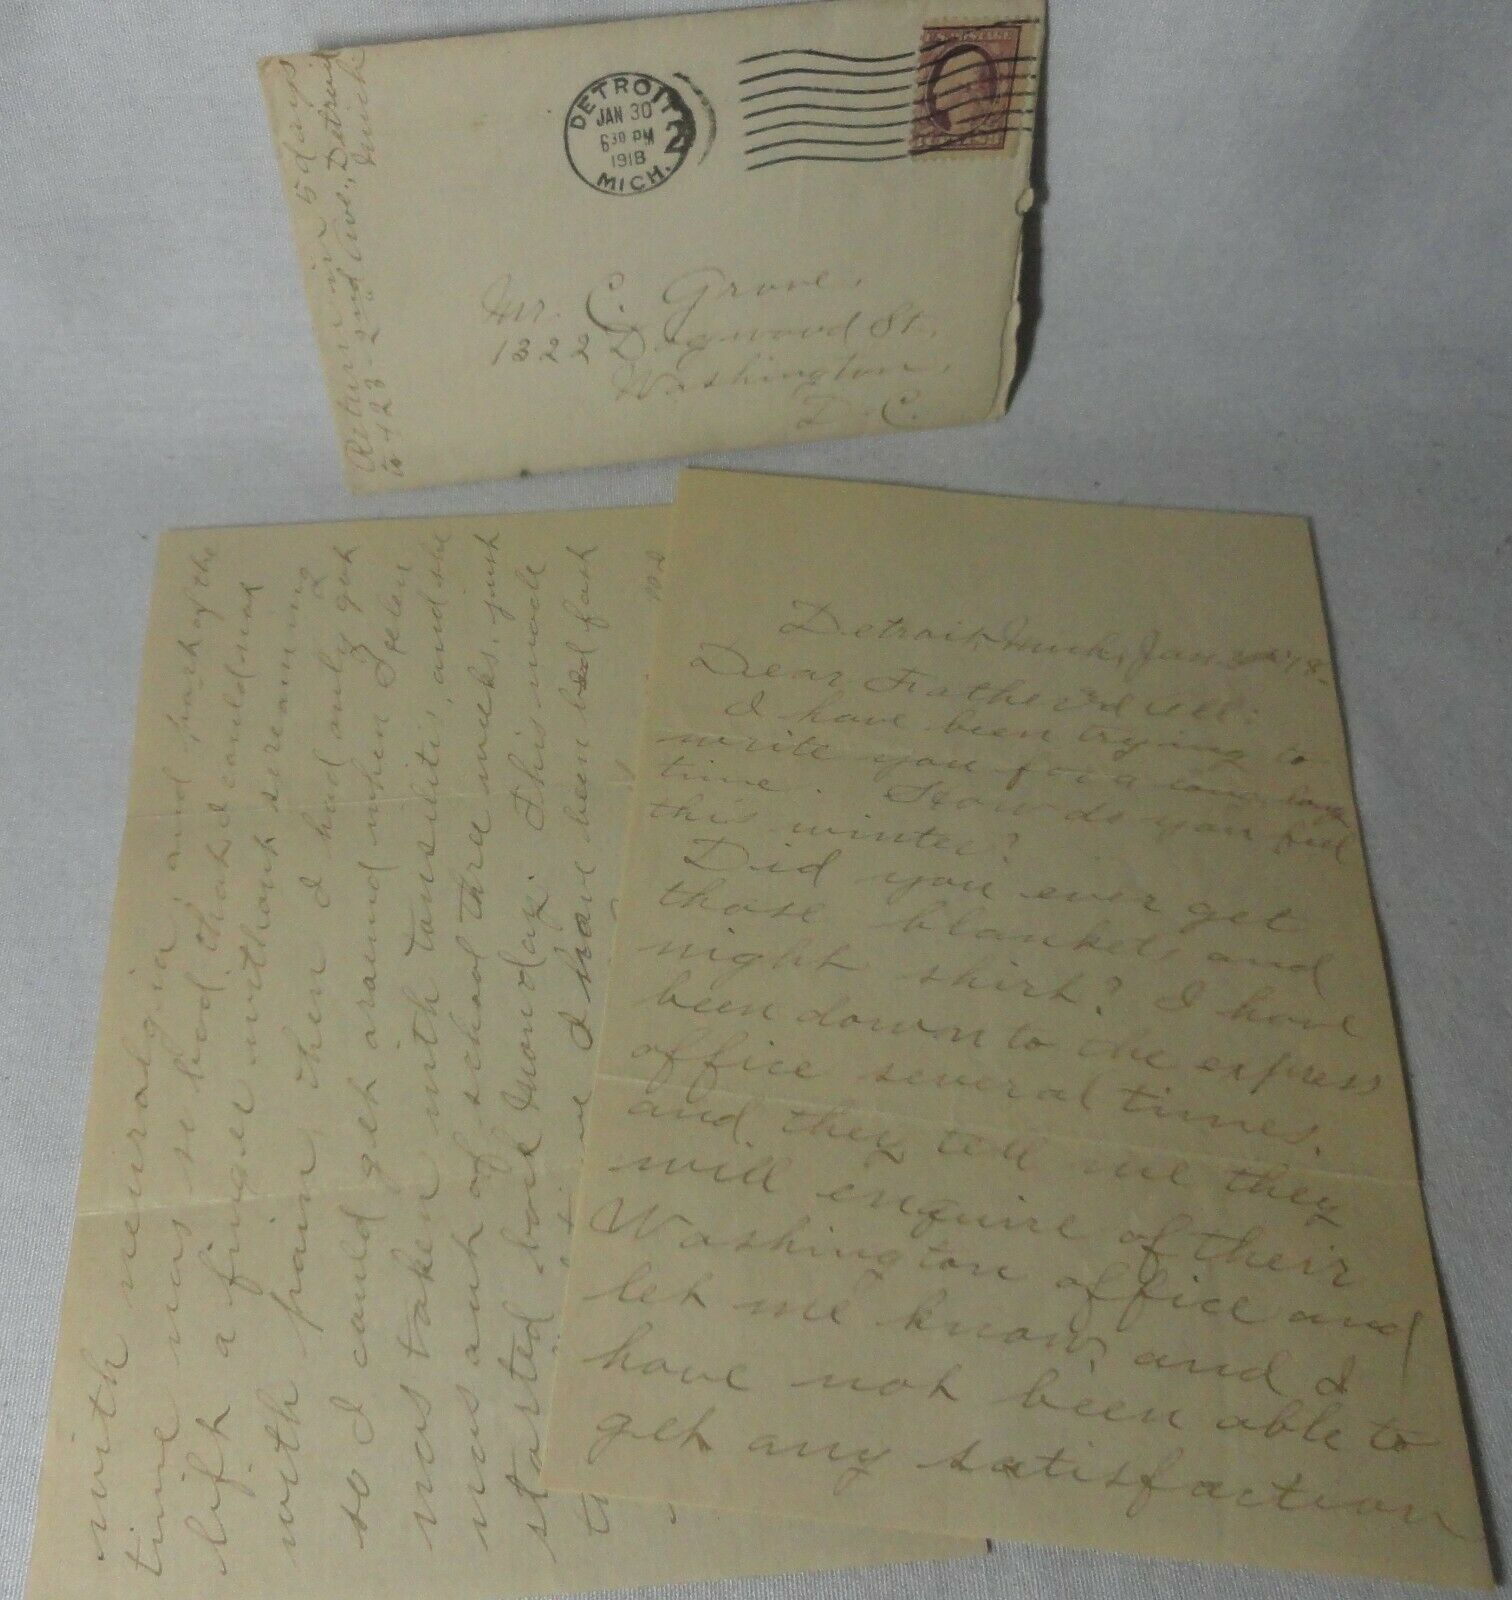 Return in 5 days
to 423-2nd Ave., Detroit
Mich
DETROIT
JAN 30
6 30 PM
1918
MICH.
2
U.S. POSTAGE
Mr. C. Grove,
1322 Dogwood St.,
Washington,
D.C.
Detroit, Mich, Jan
Dear Father and all:
I have been trying to
write you for a long long
time. How do you feel
this winter?
Did you ever get
those blankets and
night shirt? I have
been down to the express
office several times.
and they tell me they
will enquire of their
Washington office and
let me know, and I
have not been able to
get any satisfaction
with neuralgia, and part of the
time was so bad that I could not
lift a finger without screaming
with pain, then I had only got
so I could get around when Helen
was taken with tonsilitis, and she
was out of school three weeks, just
started back Monday. This made
I have been bed fast